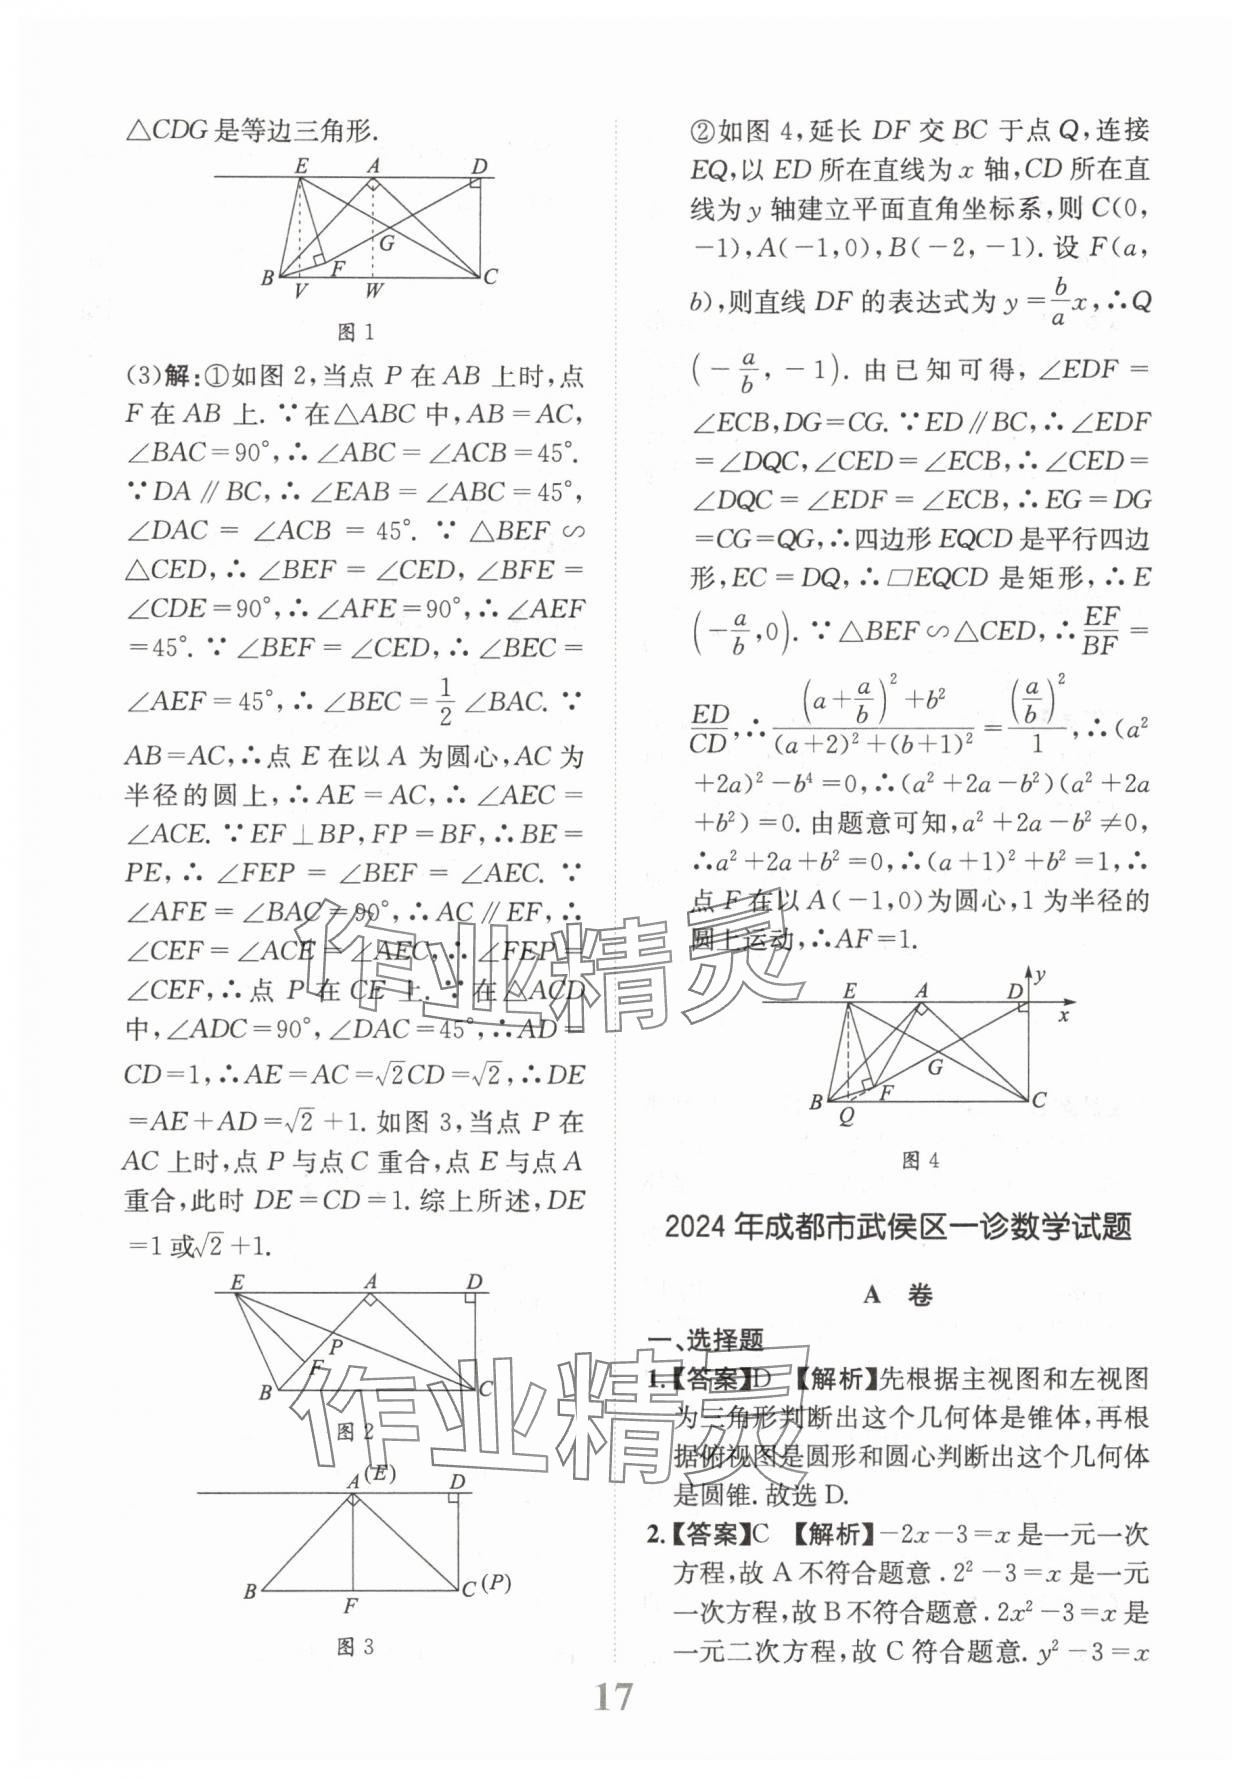 △CDG是等边三角形.
E A D
G
B F C
V W
图 1
(3)解:①如图 2,当点 P 在 AB 上时,点
F 在 AB 上. ∵在△ABC 中,AB=AC,
∠BAC=90°,∴∠ABC=∠ACB=45°.
∵DA∥BC,∴∠EAB=∠ABC=45°,
∠DAC=∠ACB=45°. ∵△BEF∽
△CED,∴∠BEF=∠CED,∠BFE=
∠CDE=90°,∴∠AFE=90°,∴∠AEF
=45°. ∵∠BEF=∠CED,∴∠BEC=
∠AEF=45°,∴∠BEC=1/2∠BAC. ∵
AB=AC,∴点 E 在以 A 为圆心,AC 为
半径的圆上,∴AE=AC,∴∠AEC=
∠ACE. ∵EF⊥BP,FP=BF,∴BE=
PE,∴∠FEP=∠BEF=∠AEC. ∵
∠AFE=∠BAC=90°,∴AC∥EF,∴
∠CEF=∠ACE=∠AEC,∴∠FEP=
∠CEF,∴点 P 在 CE 上. ∵在△ACD
中,∠ADC=90°,∠DAC=45°,∴AD=
CD=1,∴AE=AC=√2CD=√2,∴DE
=AE+AD=√2+1. 如图 3,当点 P 在
AC 上时,点 P 与点 C 重合,点 E 与点 A
重合,此时 DE=CD=1. 综上所述,DE
=1 或√2+1.
E A D
P
F
B C
图 2
A(E) D
B F C(P)
图 3
②如图 4,延长 DF 交 BC 于点 Q,连接
EQ,以 ED 所在直线为 x 轴,CD 所在直
线为 y 轴建立平面直角坐标系,则 C(0,
-1),A(-1,0),B(-2,-1). 设 F(a,
b),则直线 DF 的表达式为 y=b/a x,∴Q
(-a/b,-1). 由已知可得,∠EDF=
∠ECB,DG=CG. ∵ED∥BC,∴∠EDF
=∠DQC,∠CED=∠ECB,∴∠CED=
∠DQC=∠EDF=∠ECB,∴EG=DG
=CG=QG,∴四边形 EQCD 是平行四边
形,EC=DQ,∴□EQCD 是矩形,∴E
(-a/b,0). ∵△BEF∽△CED,∴EF/BF=
ED/CD,∴((a+a/b)²+b²)/((a+2)²+(b+1)²)=(a/b)²/1,∴(a²
+2a)²-b⁴=0,∴(a²+2a-b²)(a²+2a
+b²)=0. 由题意可知,a²+2a-b²≠0,
∴a²+2a+b²=0,∴(a+1)²+b²=1,∴
点 F 在以 A(-1,0)为圆心,1 为半径的
圆上运动,∴AF=1.
y
E A D
x
G
F
B Q C
图 4
2024 年成都市武侯区一诊数学试题
A 卷
一、选择题
1.【答案】D 【解析】先根据主视图和左视图
为三角形判断出这个几何体是锥体,再根
据俯视图是圆形和圆心判断出这个几何体
是圆锥. 故选 D.
2.【答案】C 【解析】-2x-3=x 是一元一次
方程,故 A 不符合题意. 2²-3=x 是一元
一次方程,故 B 不符合题意. 2x²-3=x 是
一元二次方程,故 C 符合题意. y²-3=x
17
作业精灵
作业精灵